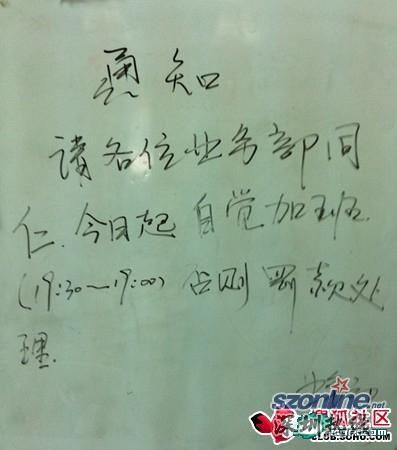 通知
请各位业务部同
仁.今日起 自觉加班.
(19:30～19:00) 否则 罚款处
理.
szonline.net
狐社区
深圳热线
CLUB.SOHU.COM